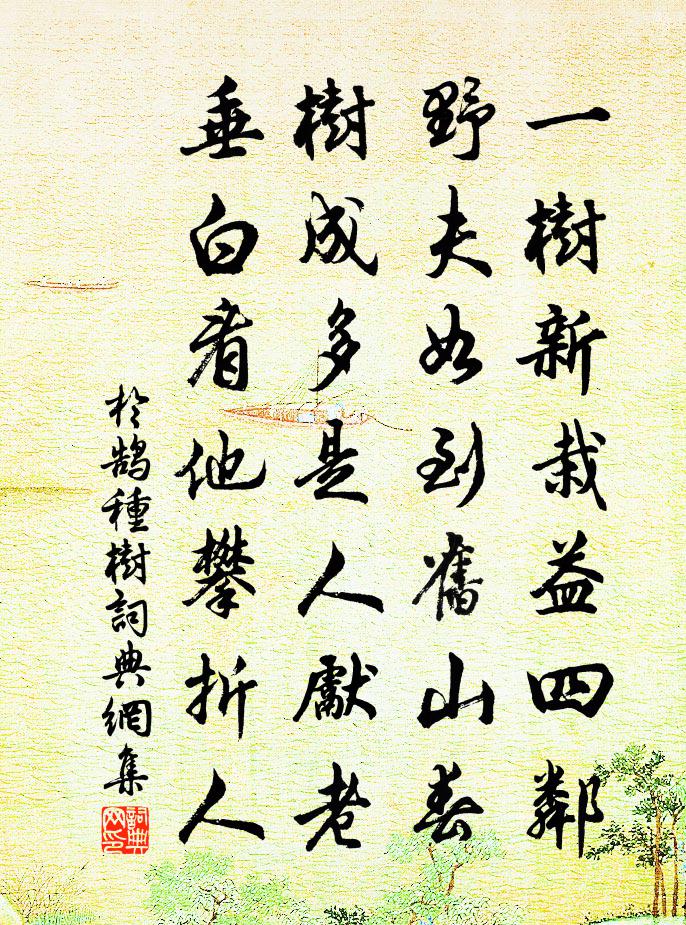 一樹新栽益四鄰
野夫如到舊山春
樹成多是人獻老
垂白看他攀折人
於鵠種樹詞典網集
詞典网印